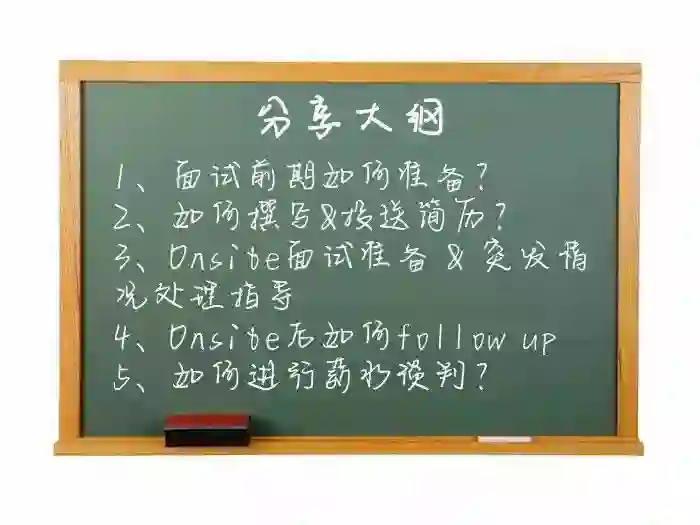 分享大纲
1、面试前期如何准备?
2、如何撰写&投送简历?
3、Onsite面试准备&突发情
况处理指导
4、Onsite后如何follow up
5、如何进行薪水谈判?